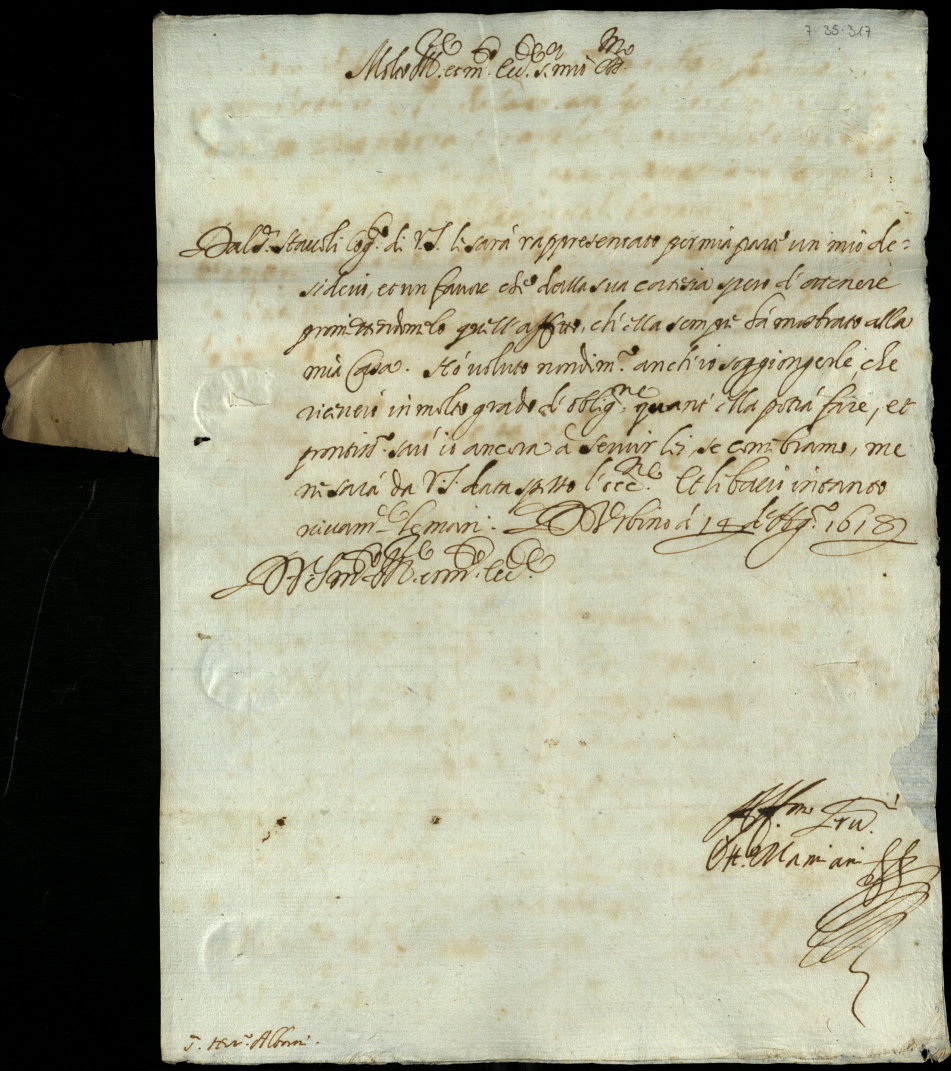 7-35-317
Molto Ill.re et m.to Ecc.te S.r mio oss.mo
Dal d. Staccoli Cog.to di V.S. li sarà rappresentato per mia parte un mio de=
siderio, et un favore che dalla sua cortesia spero d'ottenere
promettendomelo quell'affetto, ch'ella sempre hà mostrato alla
mia Casa. Hò voluto nondim.o anch'io soggiongerle, che
riceverò in molto grado d'oblig.ne quant'ella potrà fare, et
prontiss.o sarò io ancora à servir lei, se con bramo, me
ne sarà da V.S. data spesso l'occ.ne Et li bacio intanto
vivam.te le mani. D'Urbino à 14 d'Ag.o 1618
D.V.S. m.to Ill.re et m.to Ecc.te
Aff.mo Ser.re
Ott. Mamiani
S. Hor.o Albani.